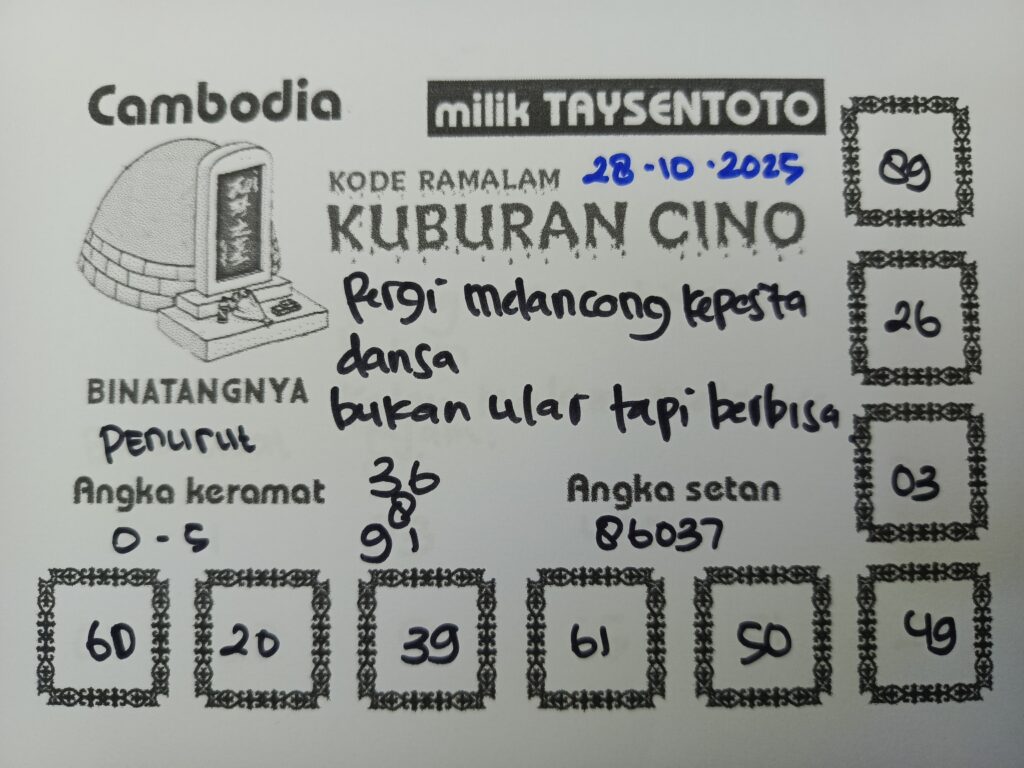 Cambodia
milik TAYSENTOTO
KODE RAMALAM 28-10-2025
KUBURAN CINO
Pergi melancong kepesta
dansa
bukan ular tapi berbisa
BINATANGNYA
Penurut
Angka keramat
0-5
36
8
91
Angka setan
86037
89
26
03
60 20 39 61 50 49